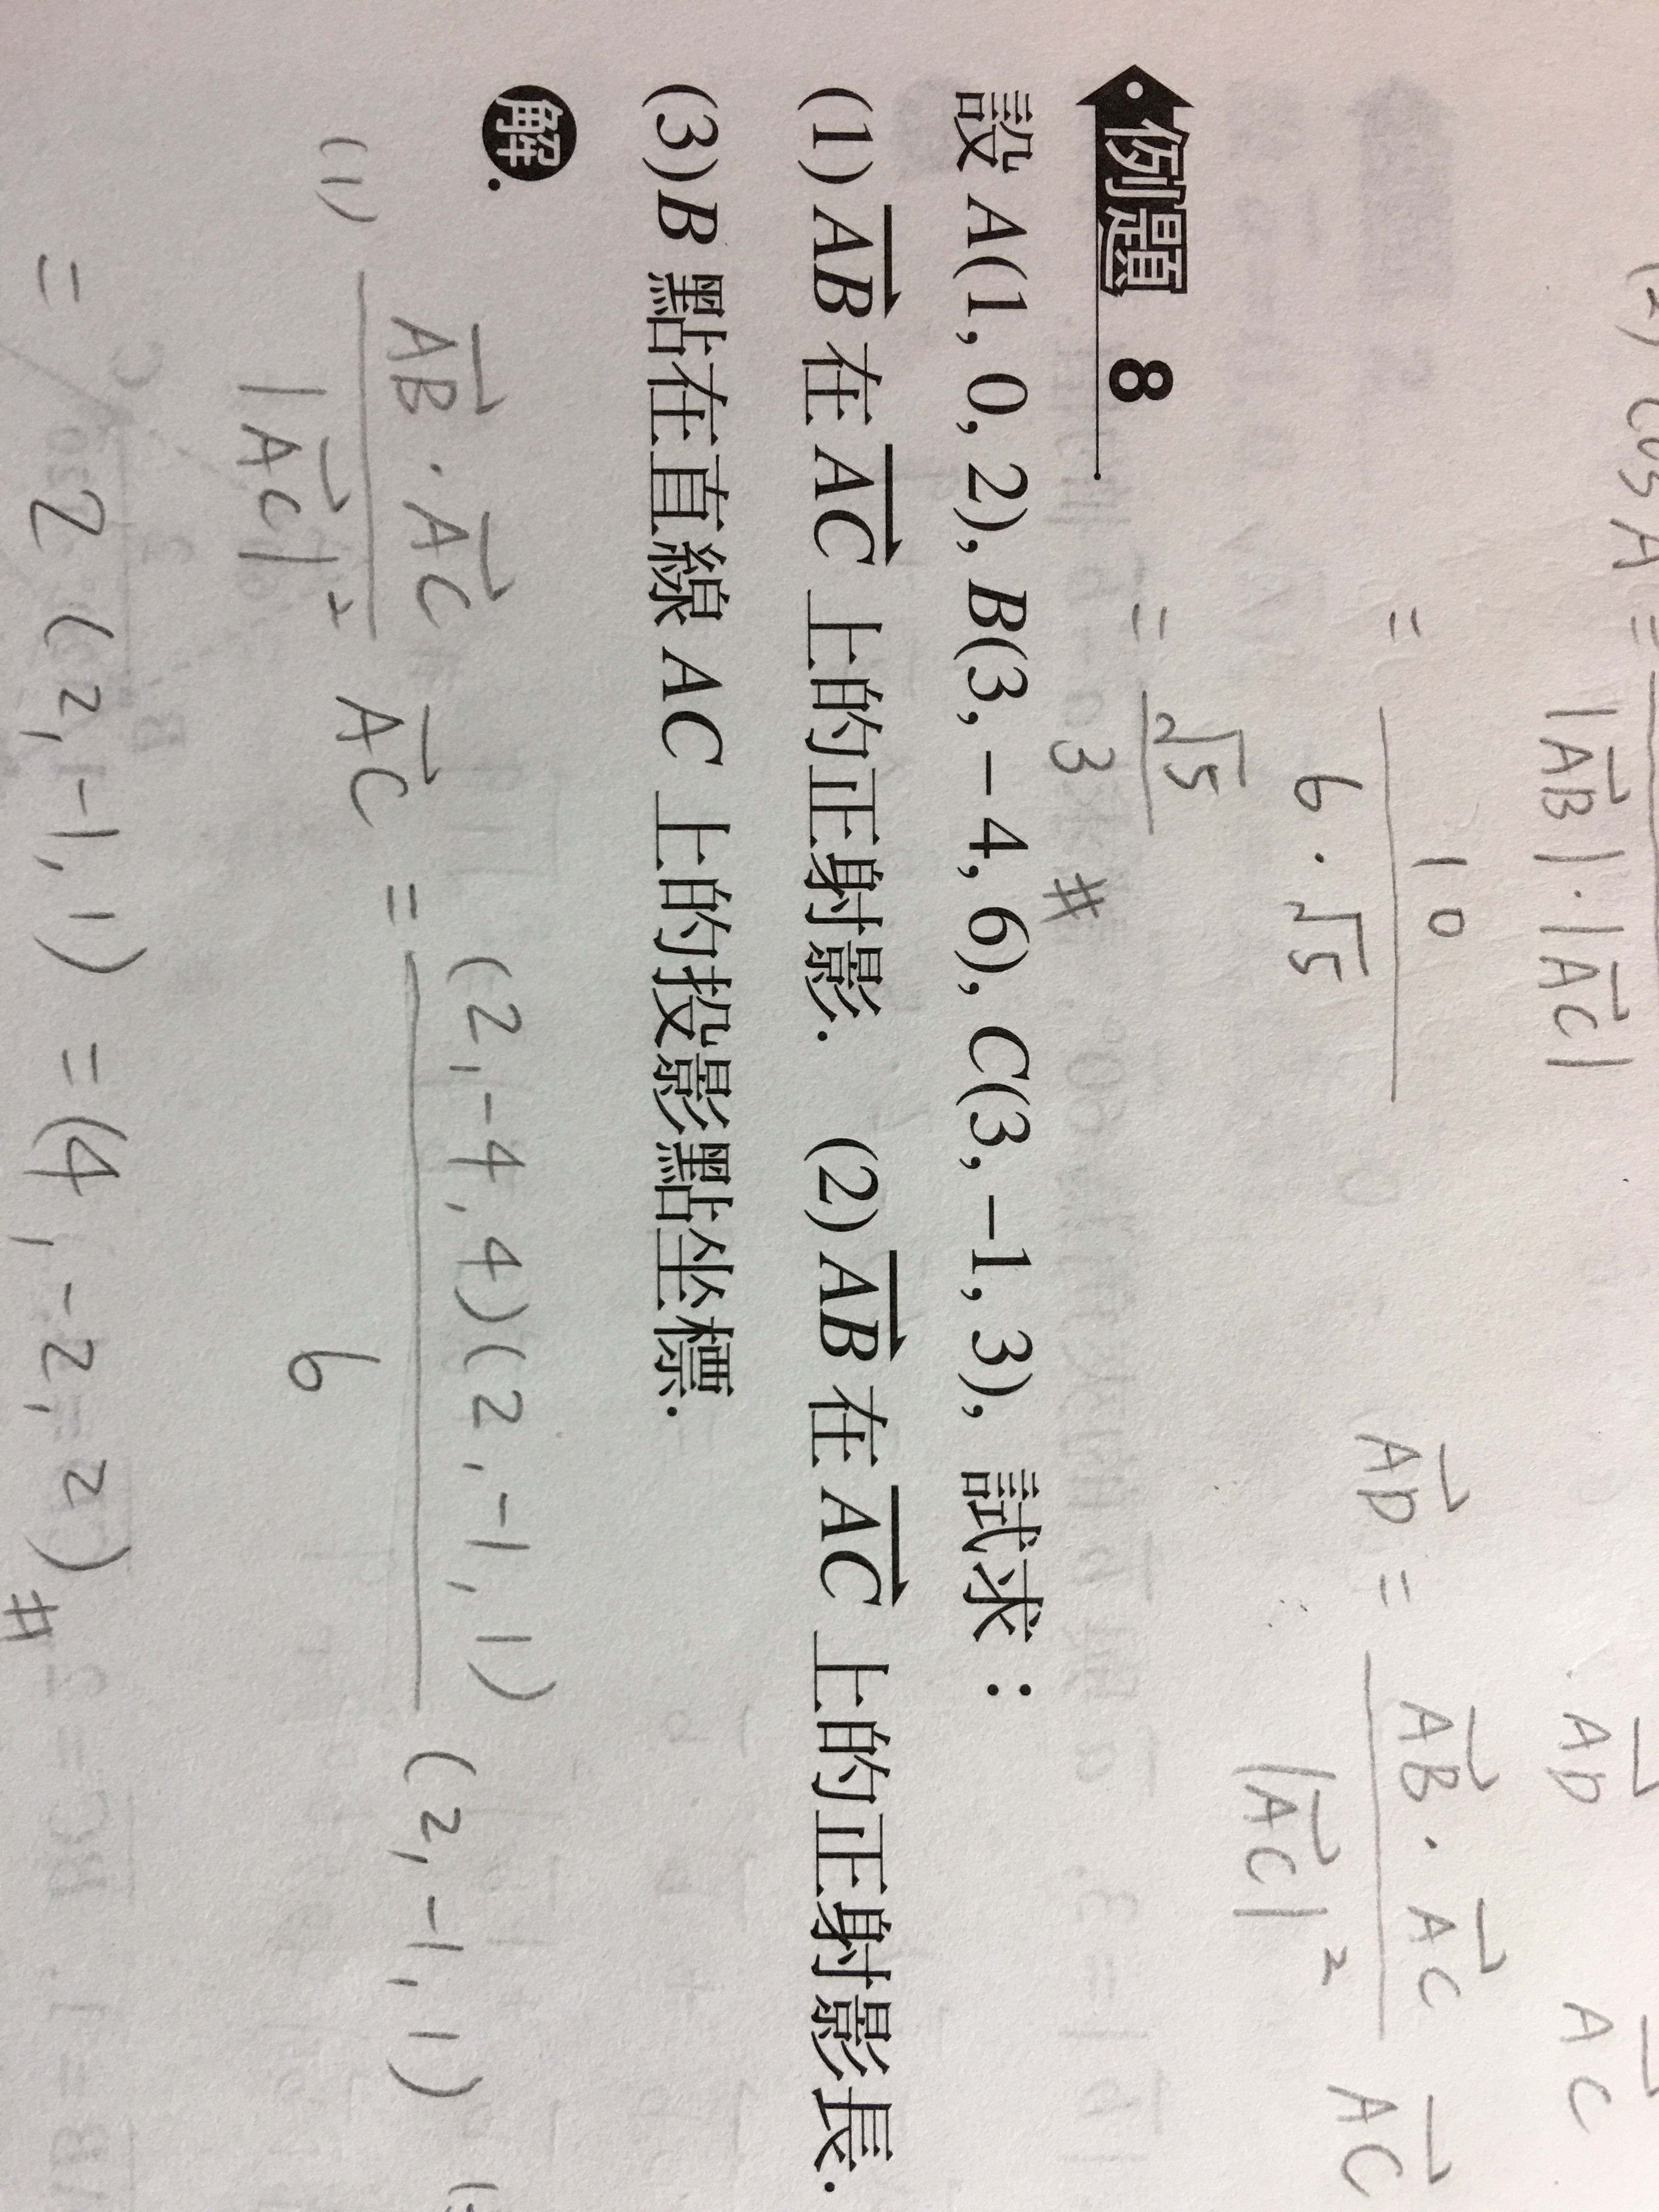 (2) cos A =
|AB| · |AC|
AD AC
= 10
6 · √5
AD = AB · AC AC
|AC|²
= √5
3 #
例題 8
設 A(1, 0, 2), B(3, −4, 6), C(3, −1, 3), 試求：
(1) AB 在 AC 上的正射影. (2) AB 在 AC 上的正射影長.
(3) B 點在直線 AC 上的投影點坐標.
解.
(1) AB · AC AC = (2, −4, 4)(2, −1, 1) (2, −1, 1)
|AC|² 6
= 2 (2, −1, 1) = (4, −2, 2) #